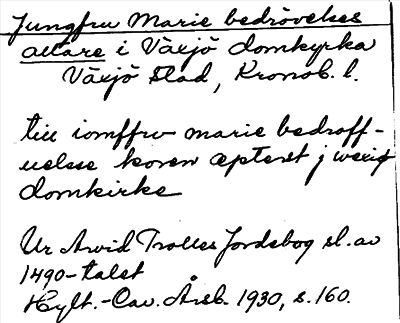 Jungfru Marie bedrövelses
altare i Växjö domkyrka
Växjö stad, Kronob. l.
till iomffrv marie bedroff-
uelsse koren epteret j wexiø
domkirke
Ur Arvid Trolles Jordebog sl. av
1490-talet
Hylt.-Cav. Årsb. 1930, s. 160.